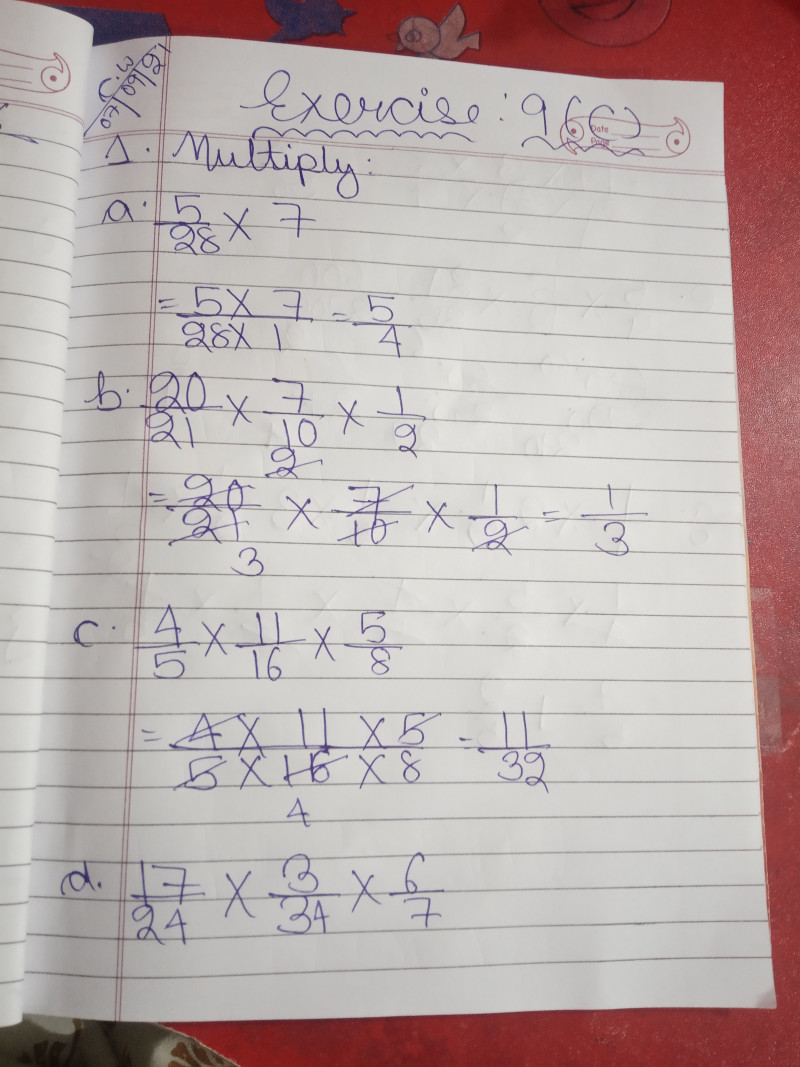 C.W
07/09/21
Exercise: 9(C)
Date
Page
1. Multiply:
a. 5/28 × 7
= 5 × 7/28 × 1 = 5/4
b. 20/21 × 7/10 × 1/2
2
= 20/21 × 7/10 × 1/2 = 1/3
3
c. 4/5 × 11/16 × 5/8
= 4 × 11 × 5/5 × 16 × 8 = 11/32
4
d. 17/24 × 3/34 × 6/7